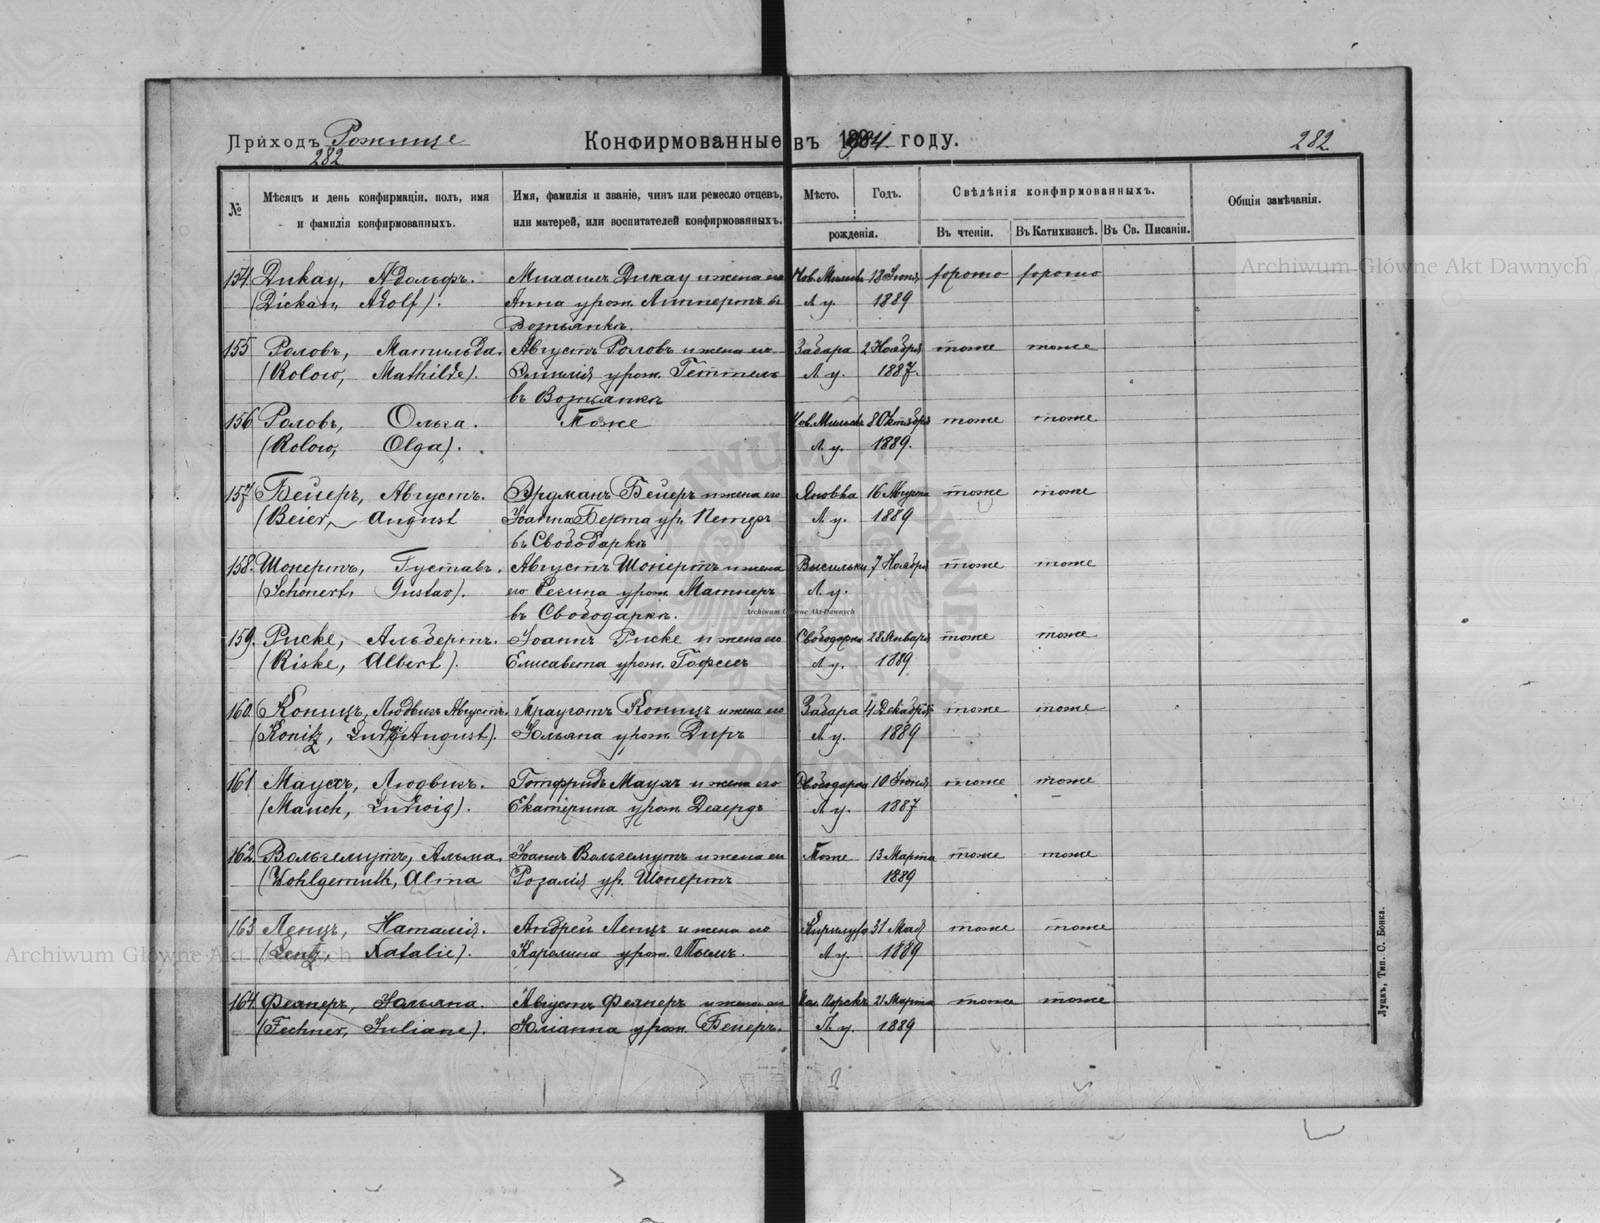 Приходъ Рожище
282
Конфирмованные въ 1904 году.
282
№
Мѣсяцъ и день конфирмаціи, полъ, имя и фамилія конфирмованныхъ.
Имя, фамилія и званіе, чинъ или ремесло отцевъ, или матерей, или воспитателей конфирмованныхъ.
Мѣсто.
Годъ.
рожденія.
Свѣдѣнія конфирмованныхъ.
Въ чтеніи.
Въ Катихизисѣ.
Въ Св. Писаніи.
Общія замѣчанія.
154. Дикау, Адольфъ. Михаилъ Дикау и жена его 12 Іюня хорошо хорошо
(Dickau, Adolf). Анна урож. Липпертъ въ Л. у. 1889
155 Роловъ, Матильда. Августъ Роловъ и жена его Забара 2 Ноября тоже тоже
(Rolow, Mathilde). Эмилія урож. Геттель Л. у. 1887.
156 Роловъ, Ольга. Тоже 8 Октября тоже тоже
(Rolow, Olga). Л. у. 1889.
157 Бейеръ, Августъ. Эрдманъ Бейеръ и жена его Яновка 16 Августа тоже тоже
(Beier, August Іоанна Берта ур. Петеръ Л. у. 1889
въ Свободаркѣ
158. Шонертъ, Густавъ. Августъ Шонертъ и жена 7 Ноября тоже тоже
(Schönert, Gustav). его урож. Л. у.
въ Свободаркѣ.
159. Риске, Альбертъ. Іоаннъ Риске и жена его Свободарка 28 Января тоже тоже
(Riske, Albert). Елисавета урож. Л. у. 1889
160. Коницъ, Людвигъ Августъ. Трауготъ Коницъ и жена его Забара 4 Декабря тоже тоже
(Konitz, Ludwig August). Юльяна урож. Диръ Л. у. 1889
161 Маухъ, Людвигъ. Готфридъ Маухъ и жена его Свободарка 10 Іюня тоже тоже
(Mauch, Ludwig). Екатерина урож. Л. у. 1887
162. Вольгемутъ, Альма. Іоаннъ Вольгемутъ и жена его Тоже 13 Марта тоже тоже
(Wohlgemuth, Alma Розалія ур. Шонертъ 1889
163 Ленцъ, Наталія. Андрей Ленцъ и жена его 31 Мая тоже тоже
(Lentz, Natalie). Каролина урож. Л. у. 1889
164 Фехнеръ, Юльяна. Августъ Фехнеръ и жена его 21 Марта тоже тоже
(Fechner, Juliane). Юліанна урож. Бейеръ. Л. у. 1889
Луцкъ, Тип. С. Бонка.
Archiwum Główne Akt Dawnych
Archiwum Główne Akt Dawnych
Archiwum Główne Akt Dawnych